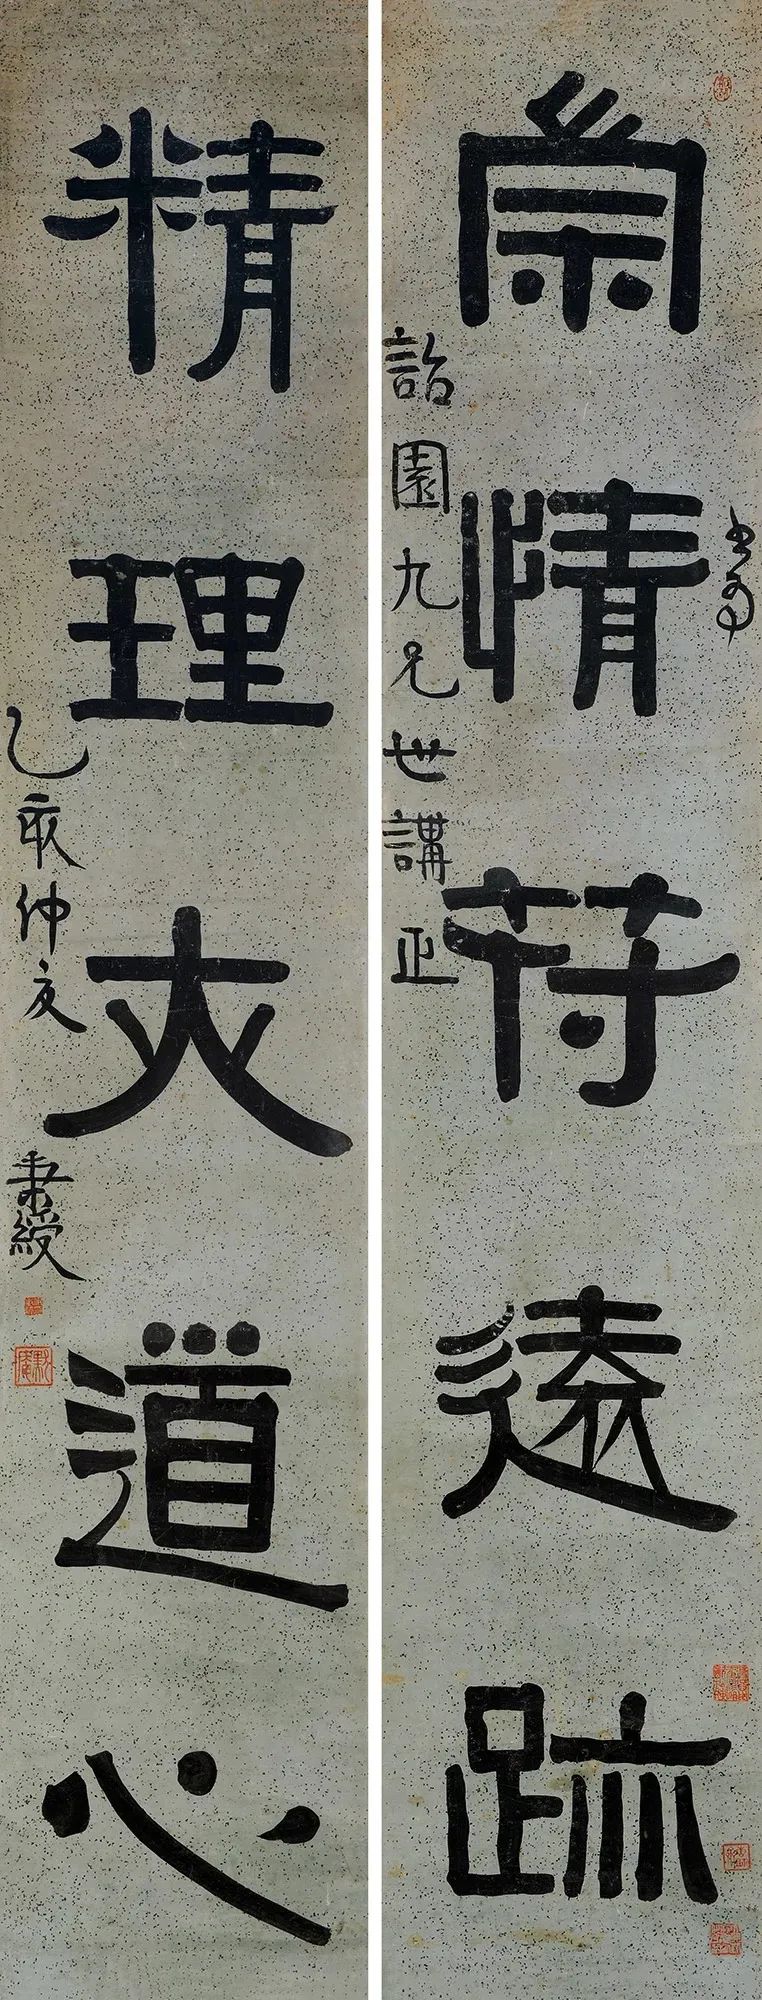 崇情符遠跡
書為
詒園九兄世講正
精理交道心
乙亥仲夏
秉綬